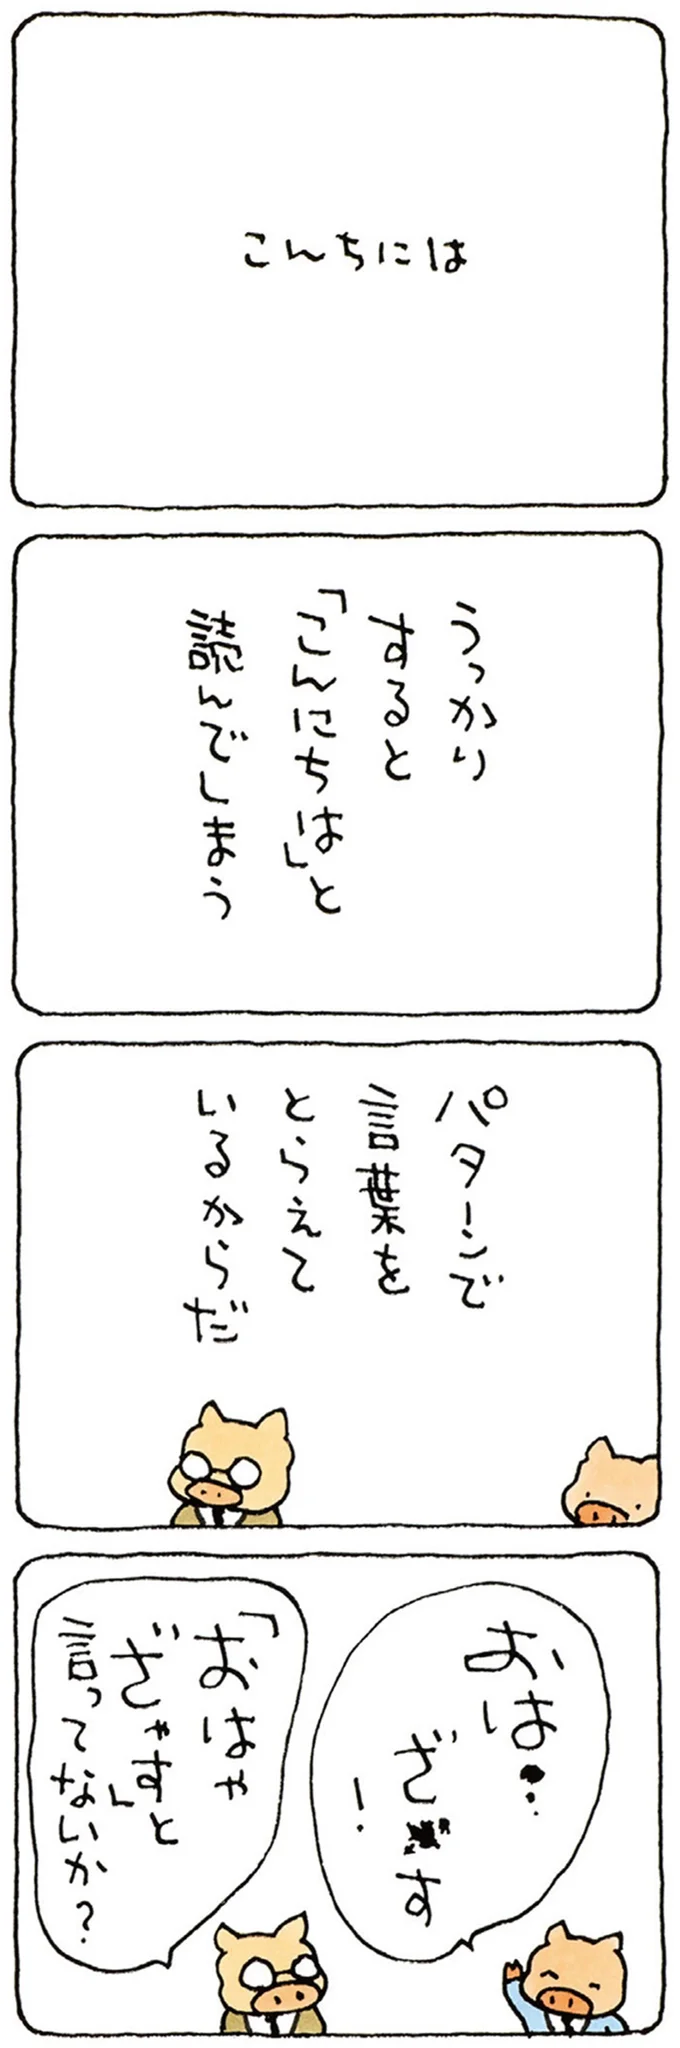 こんちには
うっかり
すると
「こんにちは」と
読んでしまう
パターンで
言葉を
とらえて
いるからだ
おは
ざ す
!
「おはや
ざゃすと」
言ってないか?